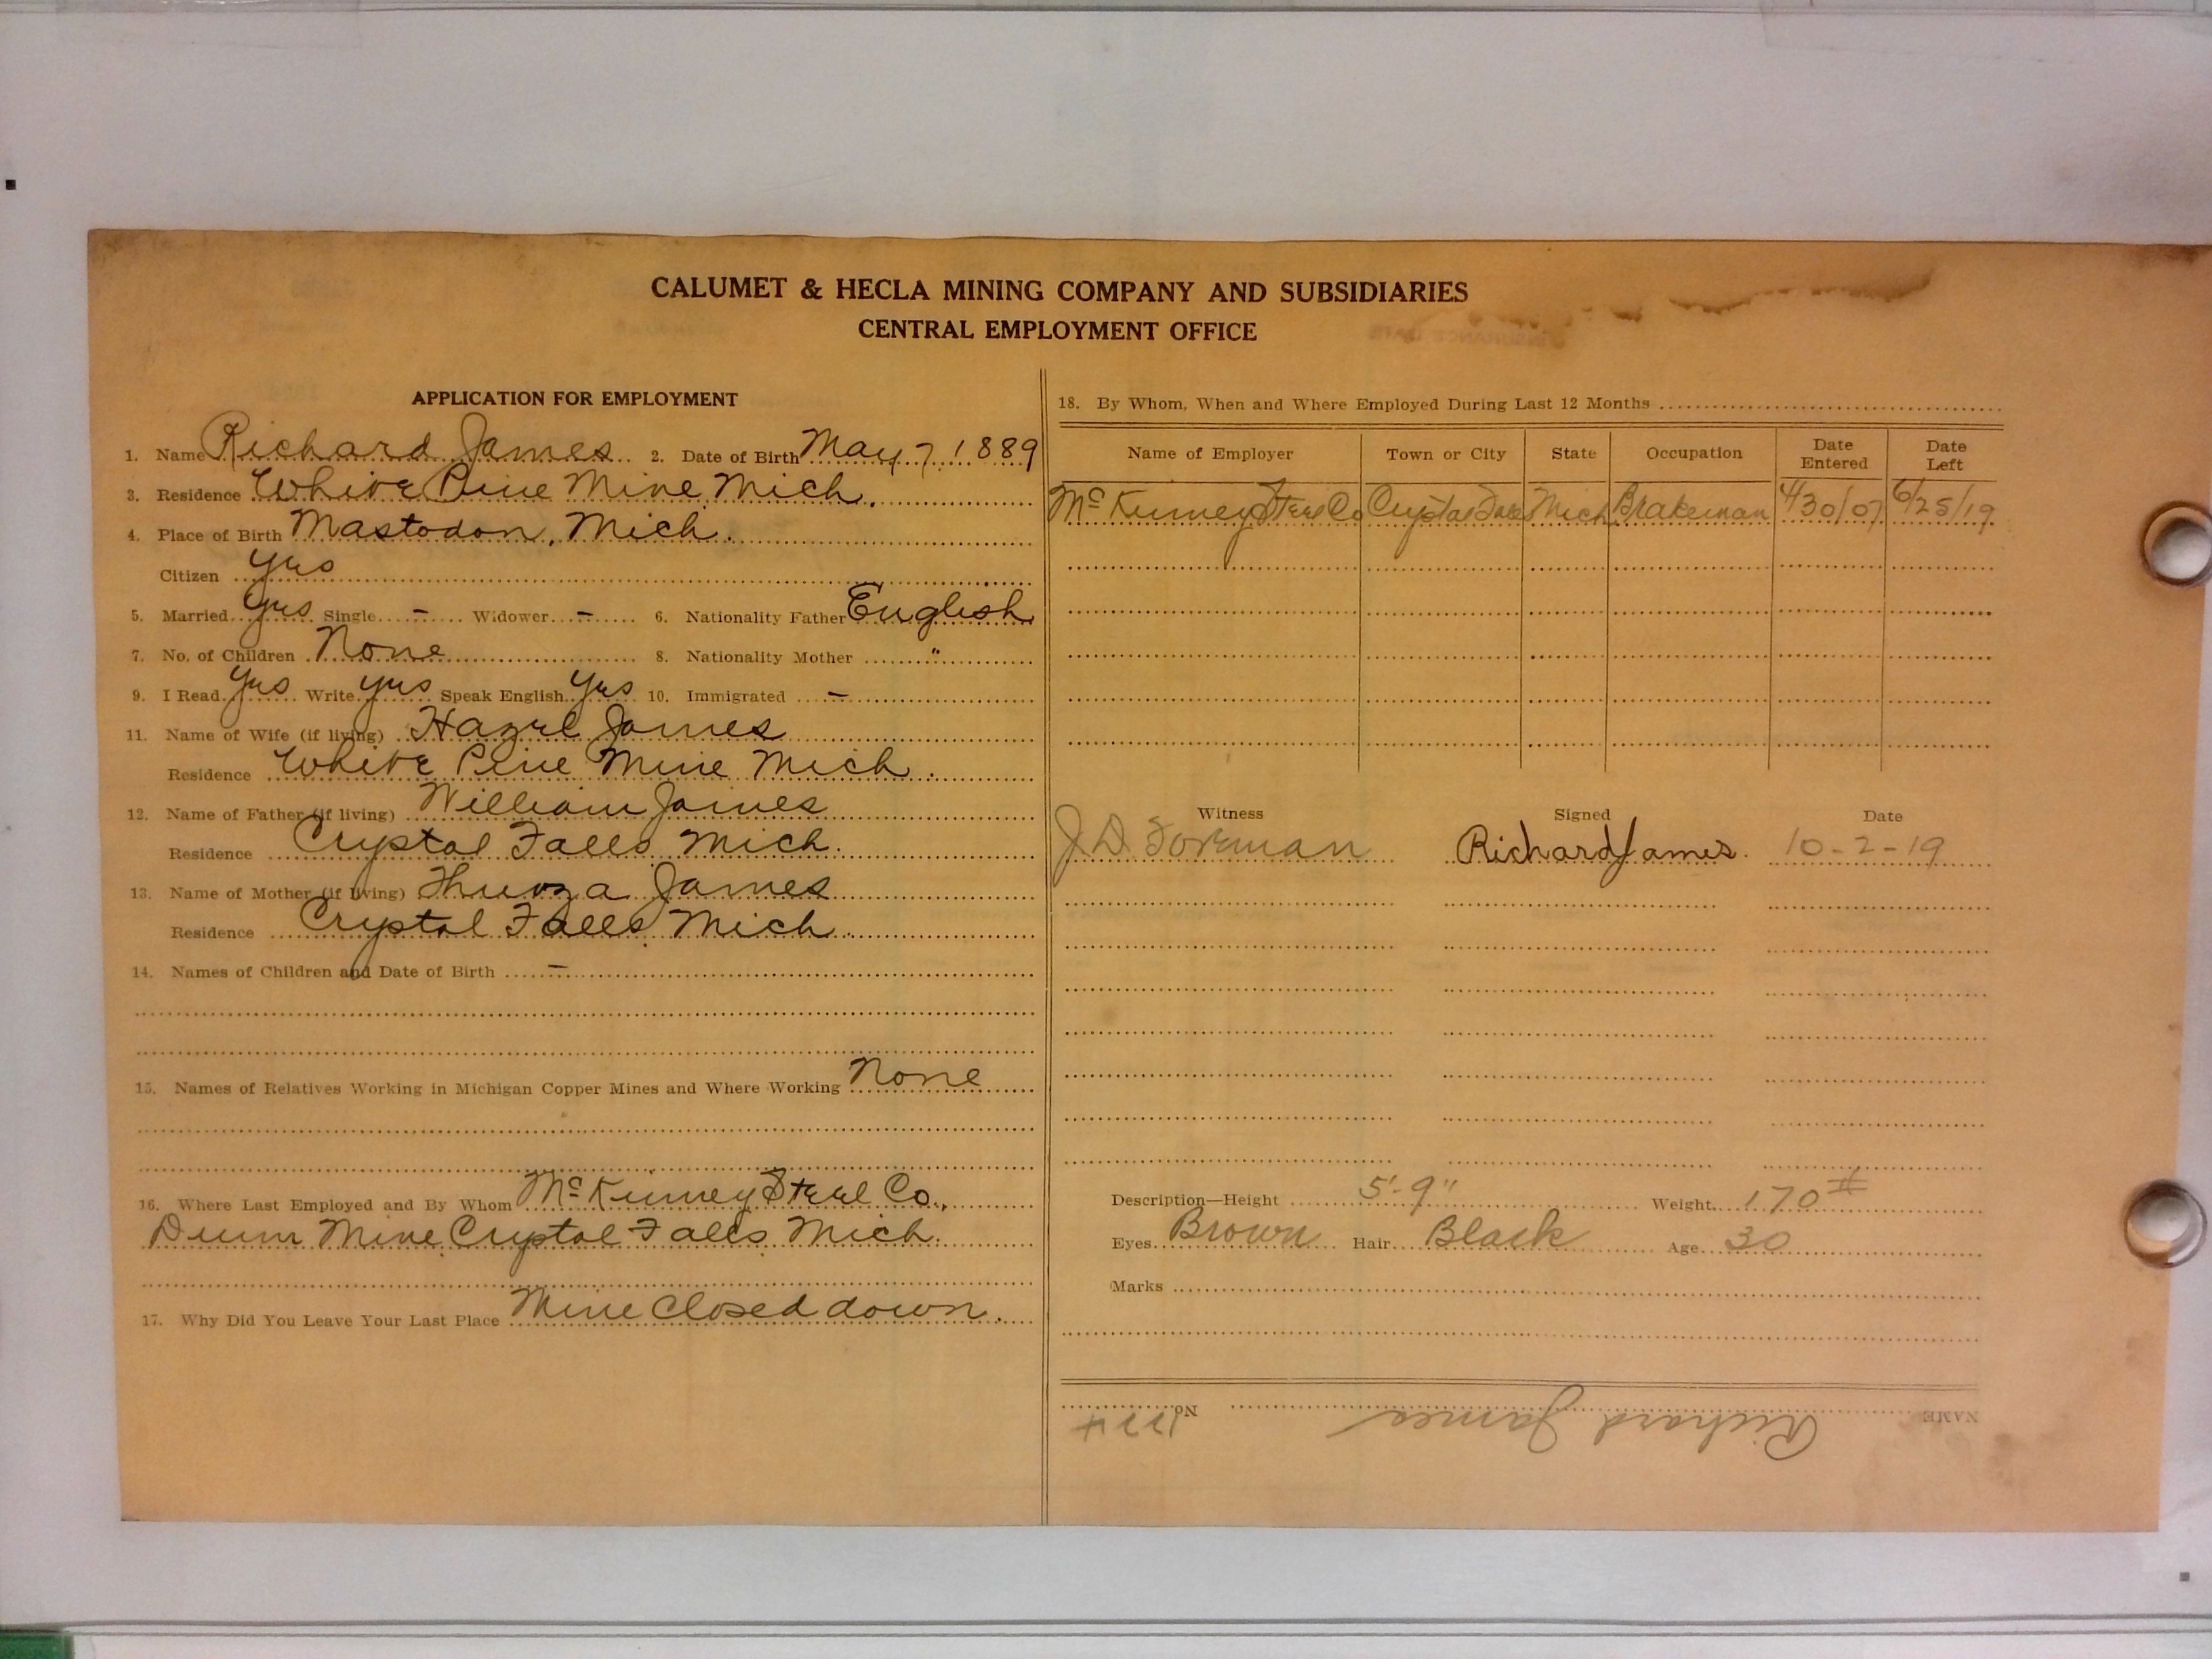 CALUMET & HECLA MINING COMPANY AND SUBSIDIARIES
CENTRAL EMPLOYMENT OFFICE
APPLICATION FOR EMPLOYMENT
1. Name Richard James 2. Date of Birth May 7, 1889
3. Residence White Pine Mine Mich.
4. Place of Birth Mastodon, Mich.
Citizen Yes
5. Married Yes Single - Widower - 6. Nationality Father English
7. No. of Children None 8. Nationality Mother "
9. I Read Yes Write Yes Speak English Yes 10. Immigrated -
11. Name of Wife (if living) Hazel James
Residence White Pine Mine Mich.
12. Name of Father (if living) William James
Residence Crystal Falls Mich.
13. Name of Mother (if living) James
Residence Crystal Falls Mich.
14. Names of Children and Date of Birth -
15. Names of Relatives Working in Michigan Copper Mines and Where Working None
16. Where Last Employed and By Whom McKinney Steel Co.,
Dunn Mine, Crystal Falls, Mich.
17. Why Did You Leave Your Last Place Mine Closed down.
18. By Whom, When and Where Employed During Last 12 Months
Name of Employer Town or City State Occupation Date Entered Date Left
McKinney Steel Co Crystal Falls Mich Brakeman 4/30/07 6/25/19
Witness Signed Date
J.D. Foreman Richard James. 10-2-19
Description—Height 5'-9" Weight 170#
Eyes Brown Hair Black Age 30
Marks
NAME Richard James No.